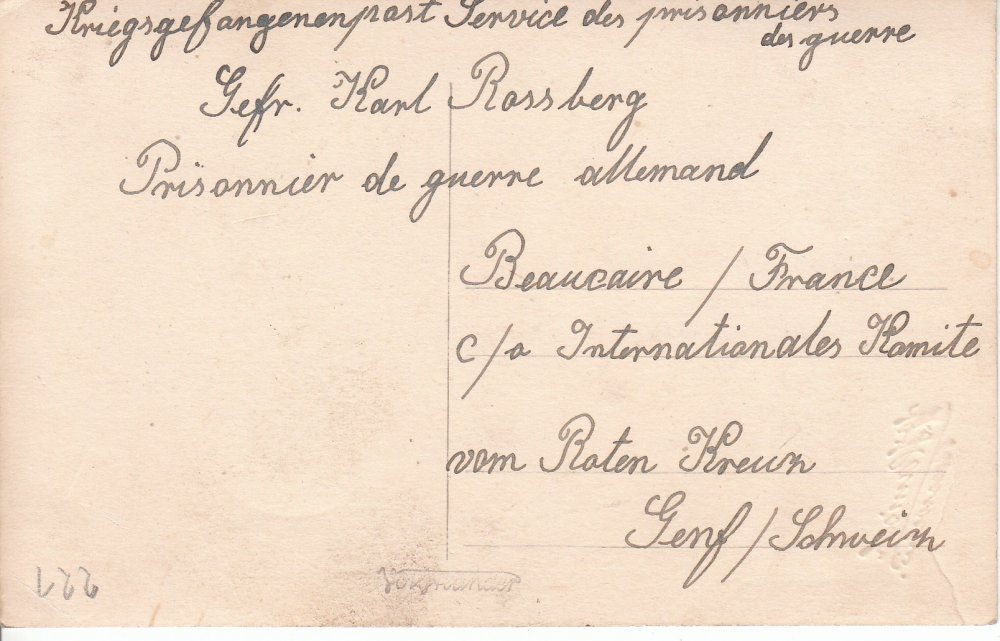 Kriegsgefangenenpost Service des prisonniers
des guerre
Gefr. Karl Rossberg
Prisonnier de guerre allemand
Beaucaire / France
c/o Internationales Komite
vom Roten Kreuz
Genf / Schweiz